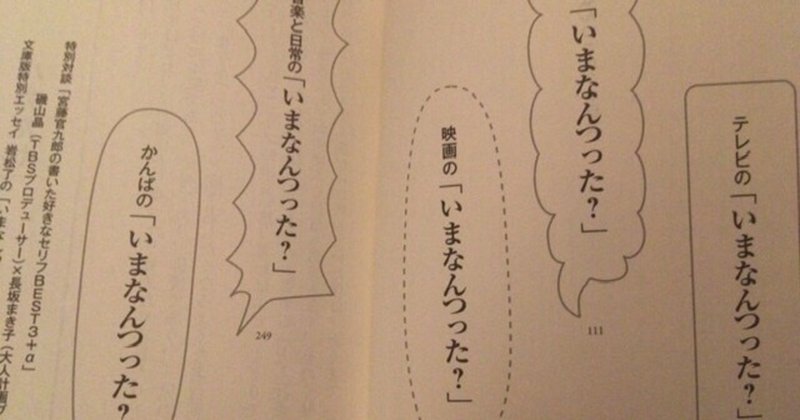 テレビの「いまなんつった?」
「いまなんつった?」
111
映画の「いまなんつった?」
音楽と日常の「いまなんつった?」
249
かんぱの「いまなんつった?
特別対談「宮藤官九郎の書いた好きなセリフBEST3+α」
磯山晶(TBSプロデューサー)×長坂まき子(大人計画
文庫版特別エッセイ 岩松了の「いまな